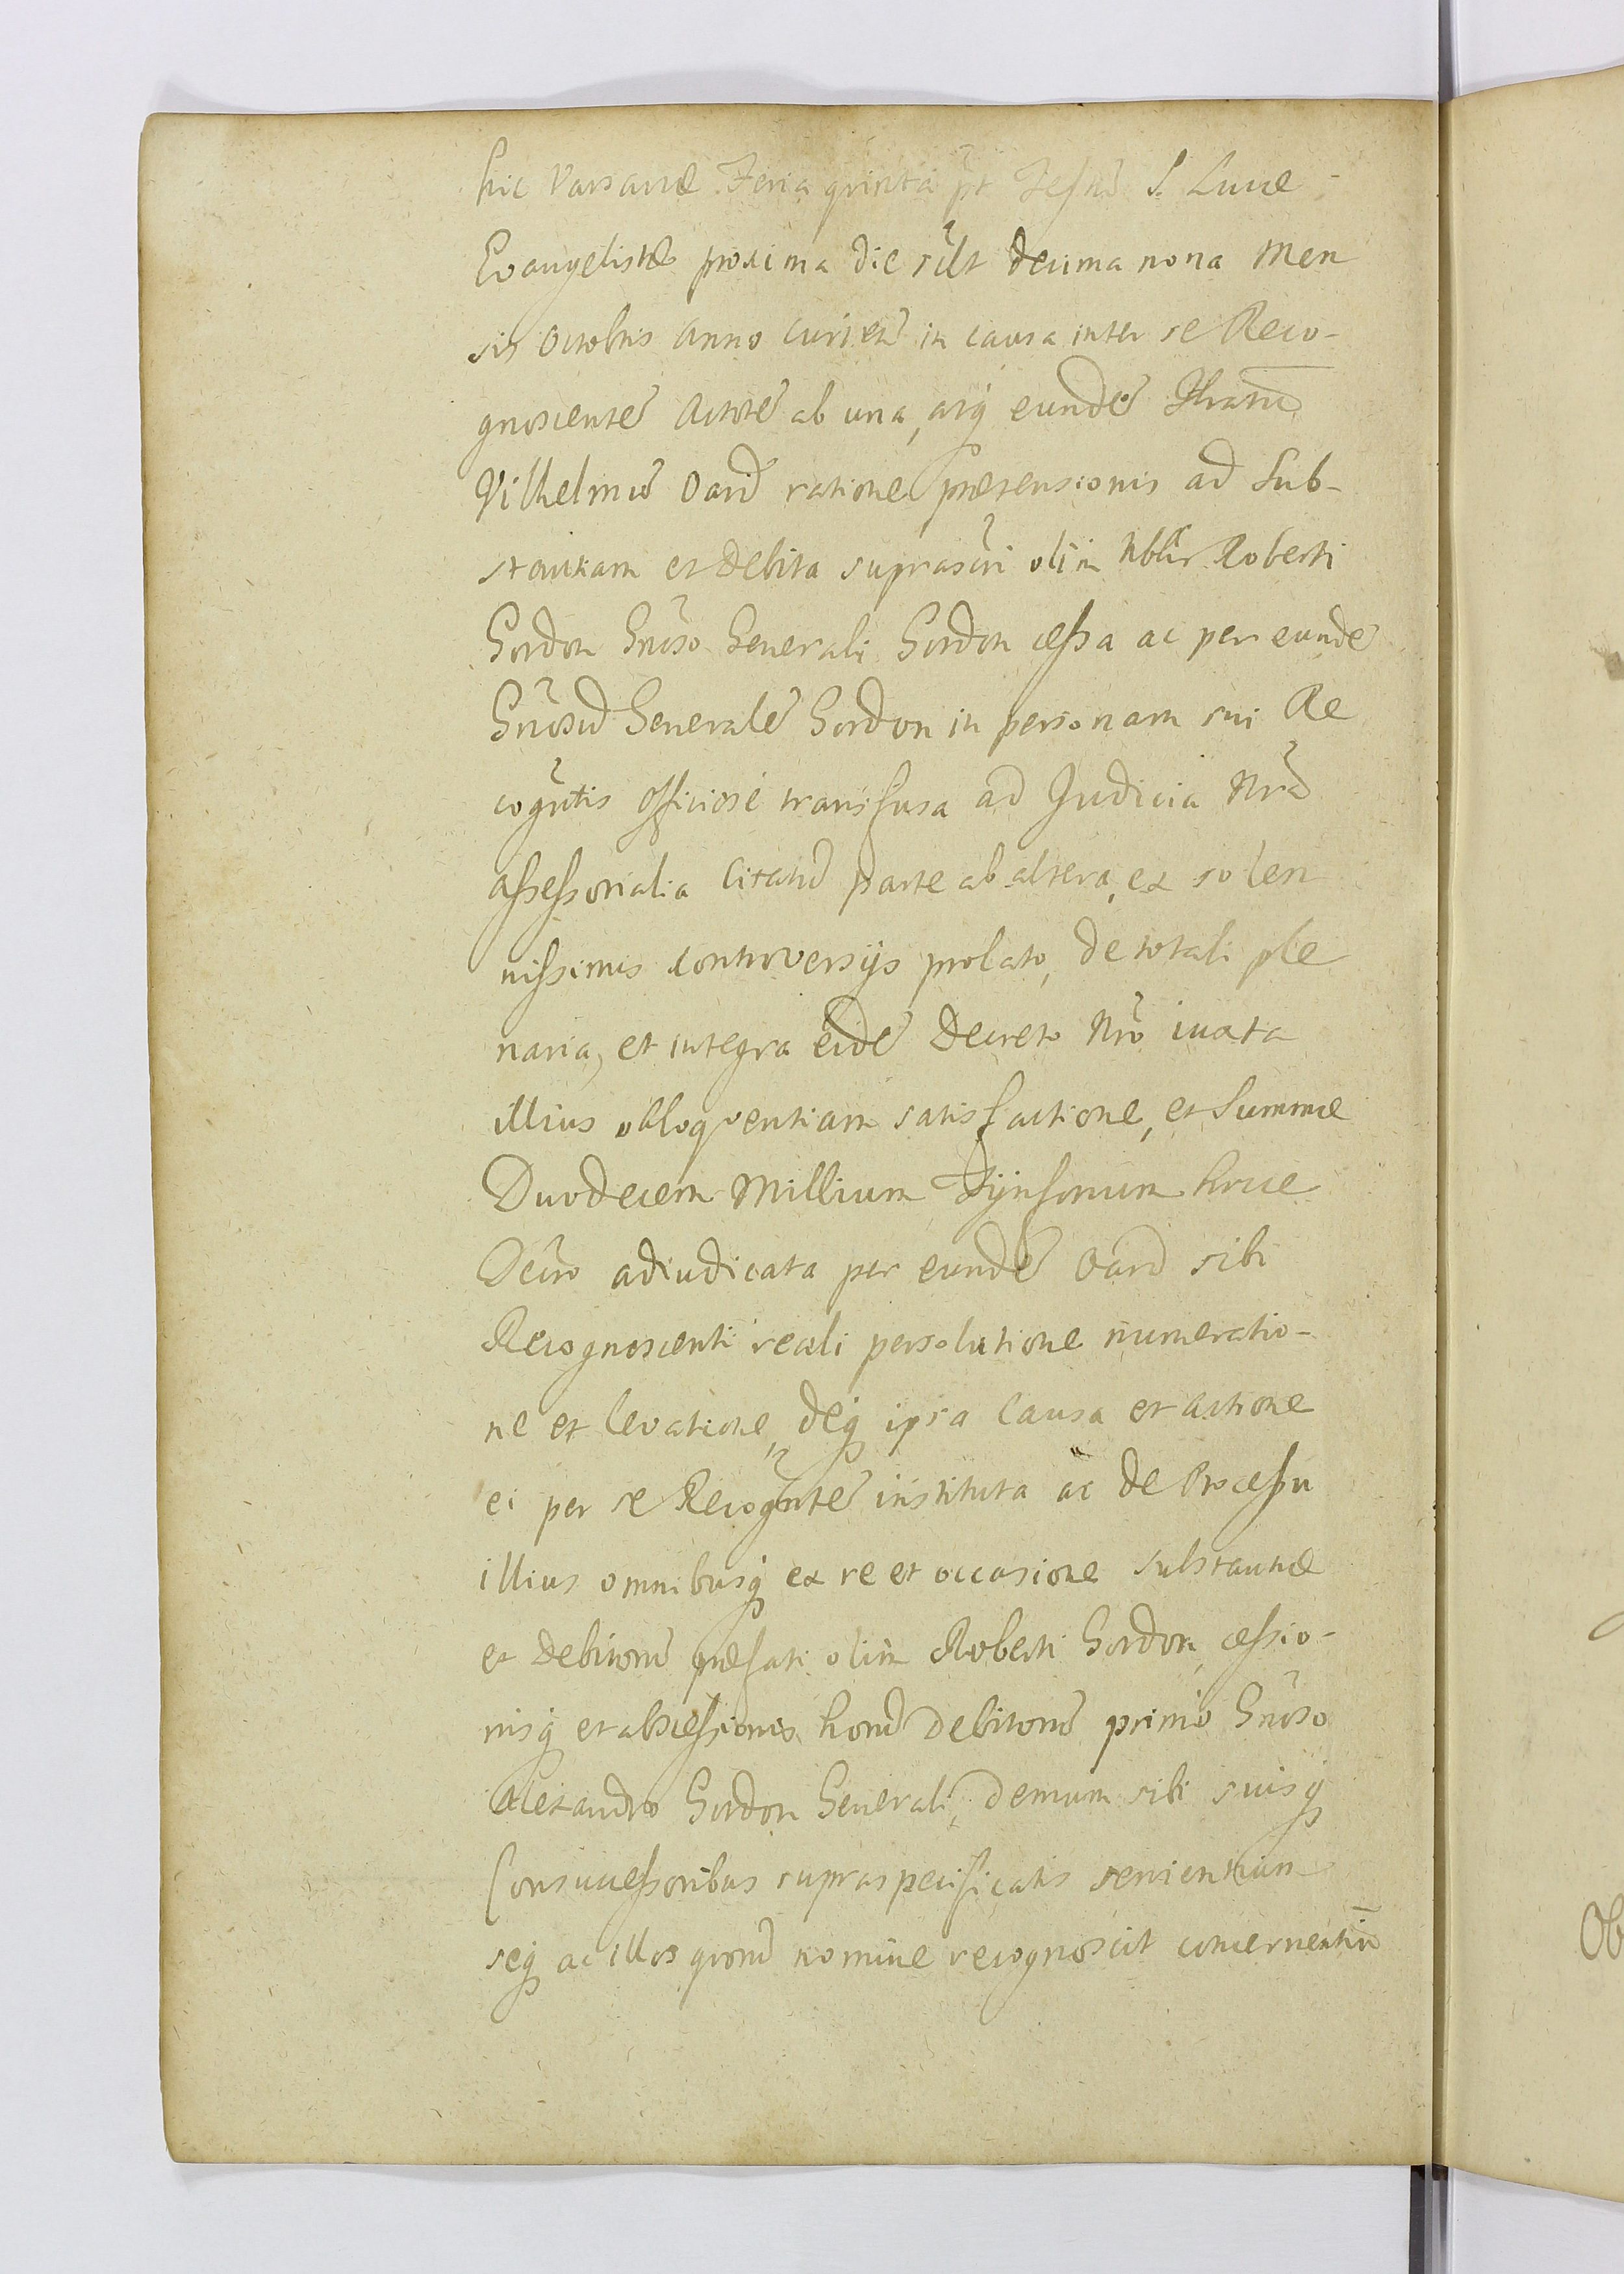 hic Varsaviæ Feria quinta pt Festũ S. Lucæ
Evangelistæ proxima die silt decima nona Men
sis Octobris Anno currẽn in causa inter se Reco-
gnoscentẽ Actorẽ ab una, atq eundẽ
Vilhelmũ Oard ratione prætensionis ad Sub-
stantiam et debita suprascri olim Nblis Roberti
Gordon Gnõso Generali Gordon cessa ac per eundẽ
Gnõsũ Generalẽ Gordon in personam sui Re
cogñtis officiosè transfusa ad Judicia Nrã
assessorialia Citatũ parte ab altera, ex solen
nissimis controversijs prolato, de totali ple
naria, et integra eidẽ Decreto Nrõ iuxta
illius obloquentiam satisfactione, et Summæ
Duodecem Millium Tynforum hocce
Decro adiudicata per eundẽ Oard sibi
Recognoscenti reali persolutione numeratio-
ne et levatione, deq ipsa Causa et actione
ei per se Recogñtẽ instituta ac de Processu
illius omnibusq ex re et occasione substantiæ
et Debitorũ præfati olim Roberti Gordon, cessio-
nisq et abscessionis horũ Debitorũ primo Gnõso
Alexandro Gordon Generali, demum sibi suisq
Consuccessoribus supraspecificatis servientium
seq ac illos quorũ nomine recognoscit concernentiũ
Ob